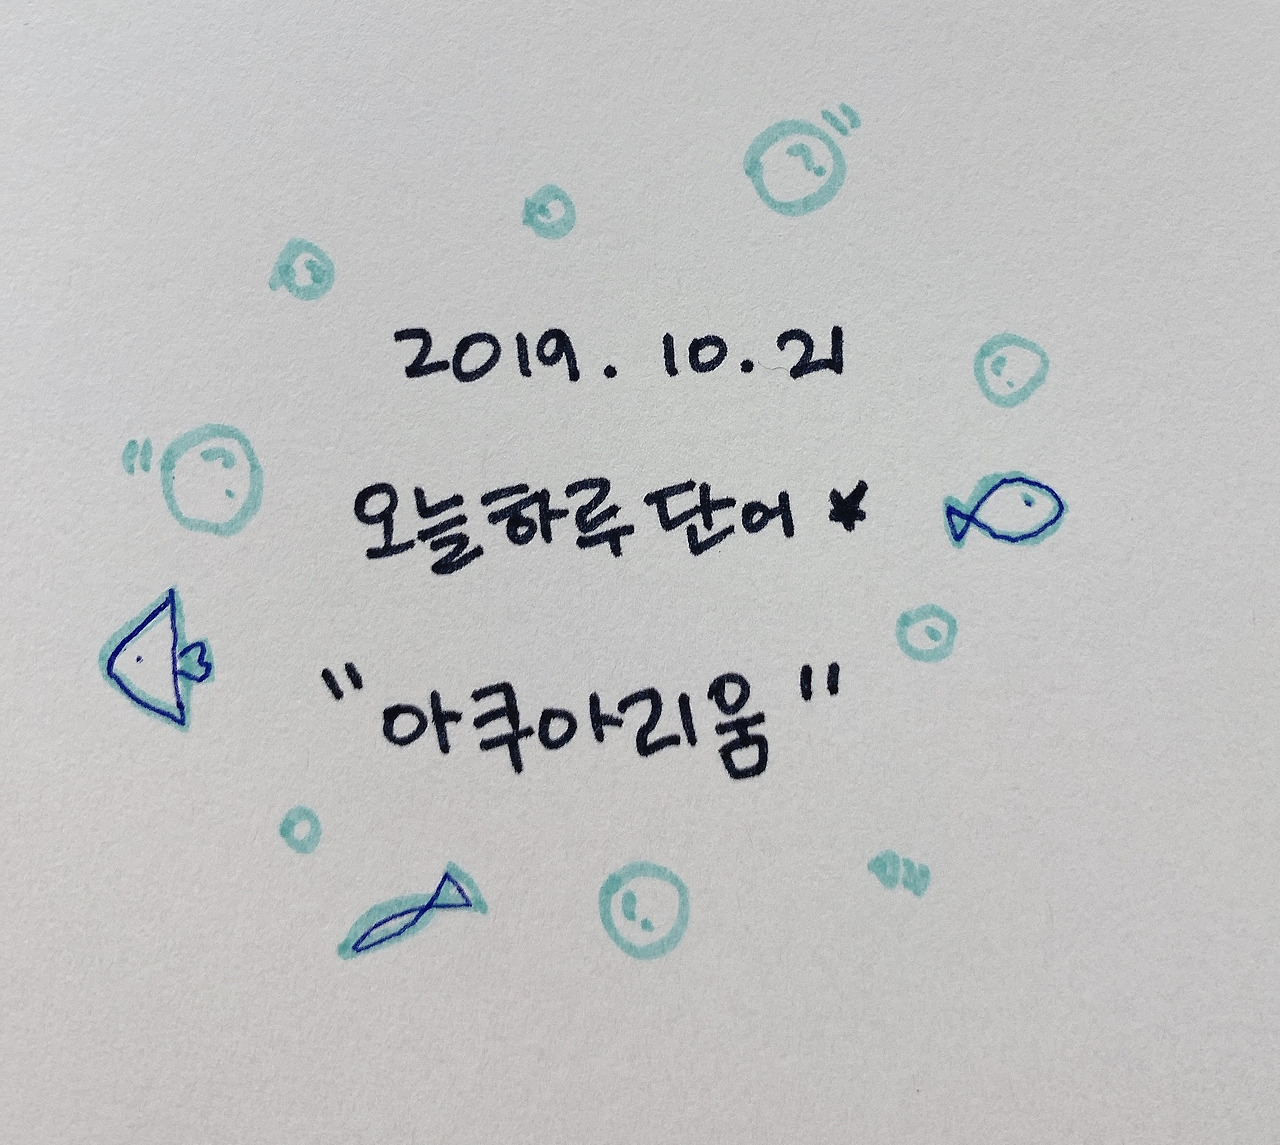 2019. 10. 21
오늘하루 단어 ★
"아쿠아리움"